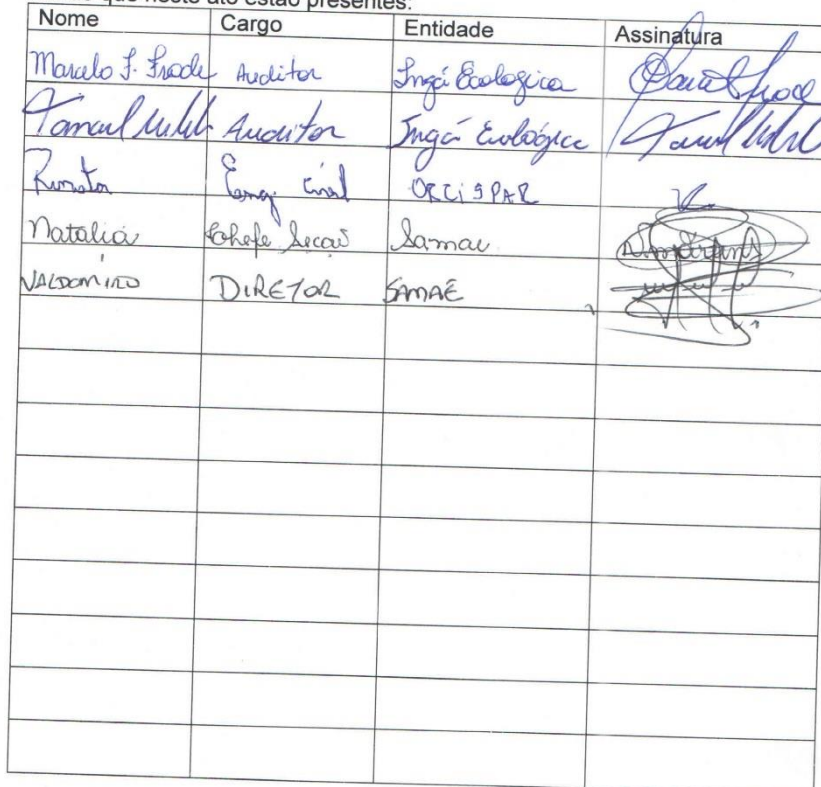 que neste ato estão presentes:
Nome Cargo Entidade Assinatura
Marcelo F. Frode Auditor Ingá Ecologica
Auditor Ingá Ecológica
Renata Eng. Civil ORCISPAR
Natália Chefe Seção Samae
VALDOMIRO DIRETOR SAMAE